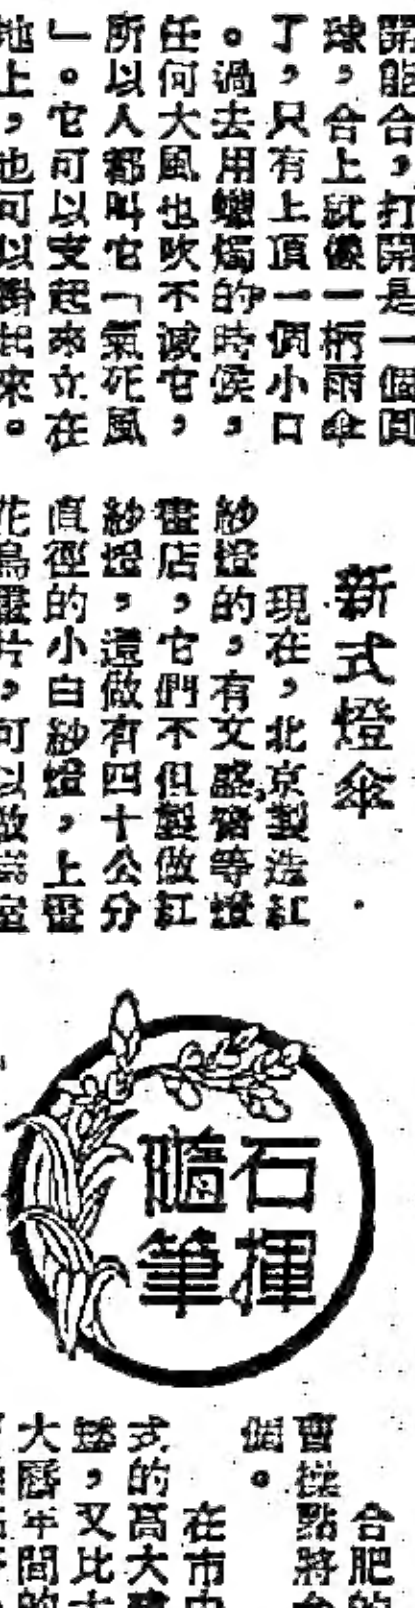 開能合，打開是一個圓
球，合上就像一柄雨傘
了，只有上頂一個小口
。過去用蠟燭的時候，
任何大風也吹不滅它，
所以人都叫它「氣死風
」。它可以支起來立在
地上，也可以掛起來。
新式燈傘
現在，北京製造紅
紗燈的，有文盛齋等燈
畫店，它們不但製做紅
紗燈，還做有四十公分
直徑的小白紗燈，上畫
花鳥畫片，可以做
石揮
隨筆
合肥的
曹操點將台
個。
在市中
式的高大建
，又比
大曆年間的